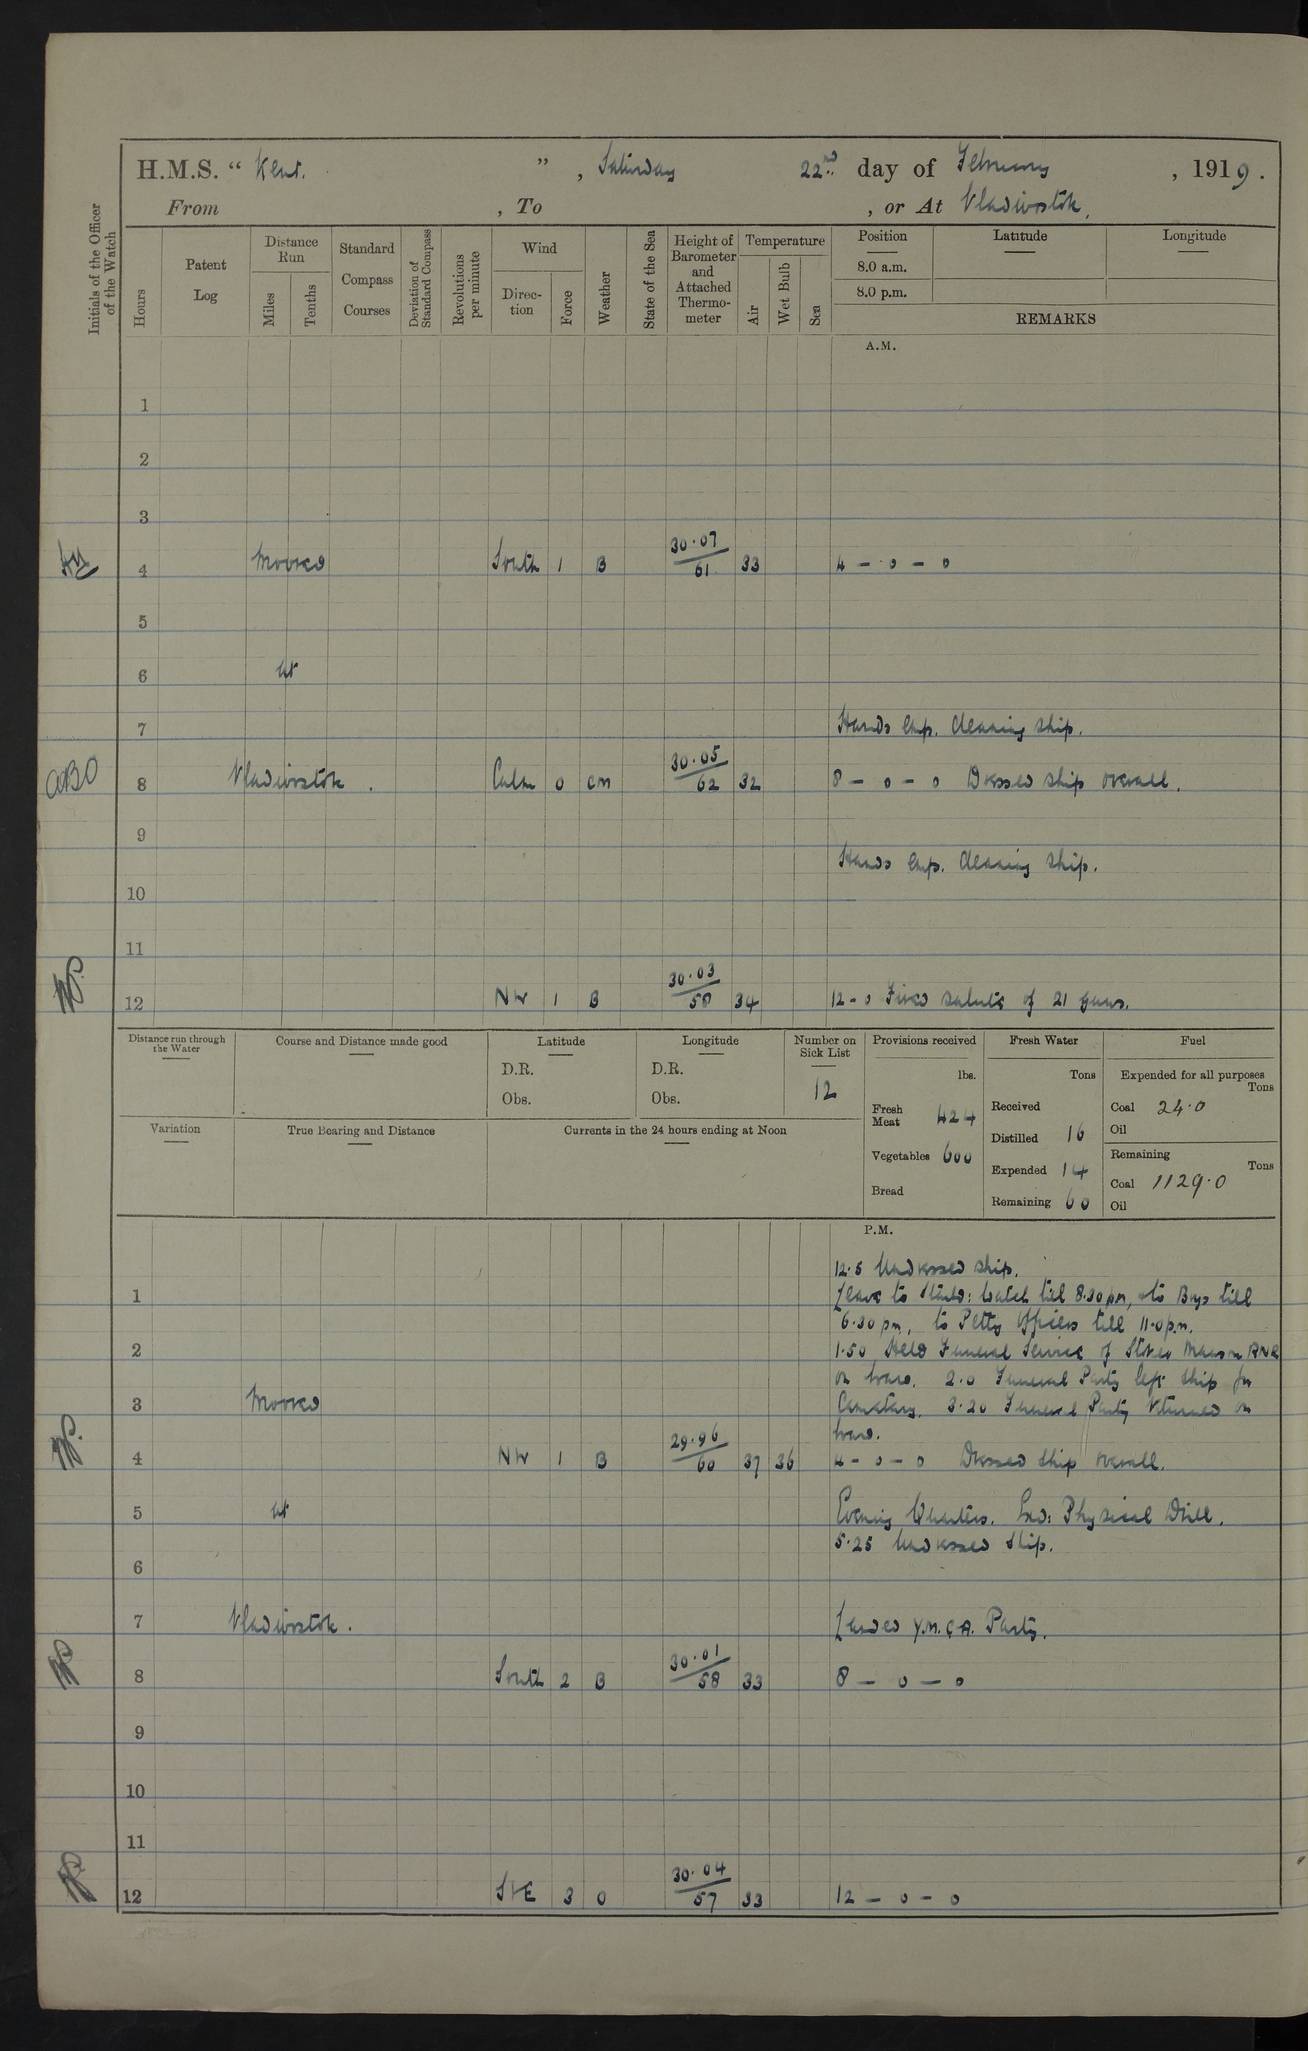 H.M.S. “ Kent. ” , Saturday 22nd day of February , 1919 .
From , To , or At Vladivostok.
Initials of the Officer of the Watch
Hours
Patent Log
Distance Run
Miles
Tenths
Standard Compass Courses
Deviation of Standard Compass
Revolutions per minute
Wind
Direction
Force
Weather
State of the Sea
Height of Barometer and Attached Thermometer
Temperature
Air
Wet Bulb
Sea
Position Latitude Longitude
8.0 a.m.
8.0 p.m.
REMARKS
A.M.
1
2
3
4 Moored South 1 B 30.07/61 33 4 – 0 – 0
5
6 at
7 Hands emp. cleaning ship.
ABO 8 Vladivostok. Calm 0 cm 30.05/62 32 8 – 0 – 0 Dressed ship overall.
9
Hands emp. cleaning ship.
10
11
12 NW 1 B 30.03/58 34 12 - 0 Fired salute of 21 guns.
Distance run through the Water
Course and Distance made good
Latitude
D.R.
Obs.
Longitude
D.R.
Obs.
Number on Sick List
12
Variation
True Bearing and Distance
Currents in the 24 hours ending at Noon
Provisions received
lbs.
Fresh Meat 424
Vegetables 600
Bread
Fresh Water
Tons
Received
Distilled 16
Expended 14
Remaining 60
Fuel
Expended for all purposes
Tons
Coal 24.0
Oil
Remaining
Tons
Coal 1129.0
Oil
P.M.
12.5 Undressed ship.
1 Leave to Starbd: Watch till 8.30 pm, to Boys till
6.30 pm, to Petty Officers till 11.0 p.m.
2 1.50 Held Funeral Service of RNR
on board. 2.0 Funeral Party left ship for
3 Moored Cemetary. 3.20 Funeral Party returned on
board.
4 NW 1 B 29.96/60 37 36 4 - 0 - 0 Dressed ship overall.
5 at Evening Quarters. Exd: Physical Drill.
5.25 Undressed ship.
6
7 Vladivostok. Landed Y.M.C.A. Party.
8 South 2 B 30.01/58 33 8 – 0 – 0
9
10
11
12 3 0 30.04/57 33 12 – 0 – 0